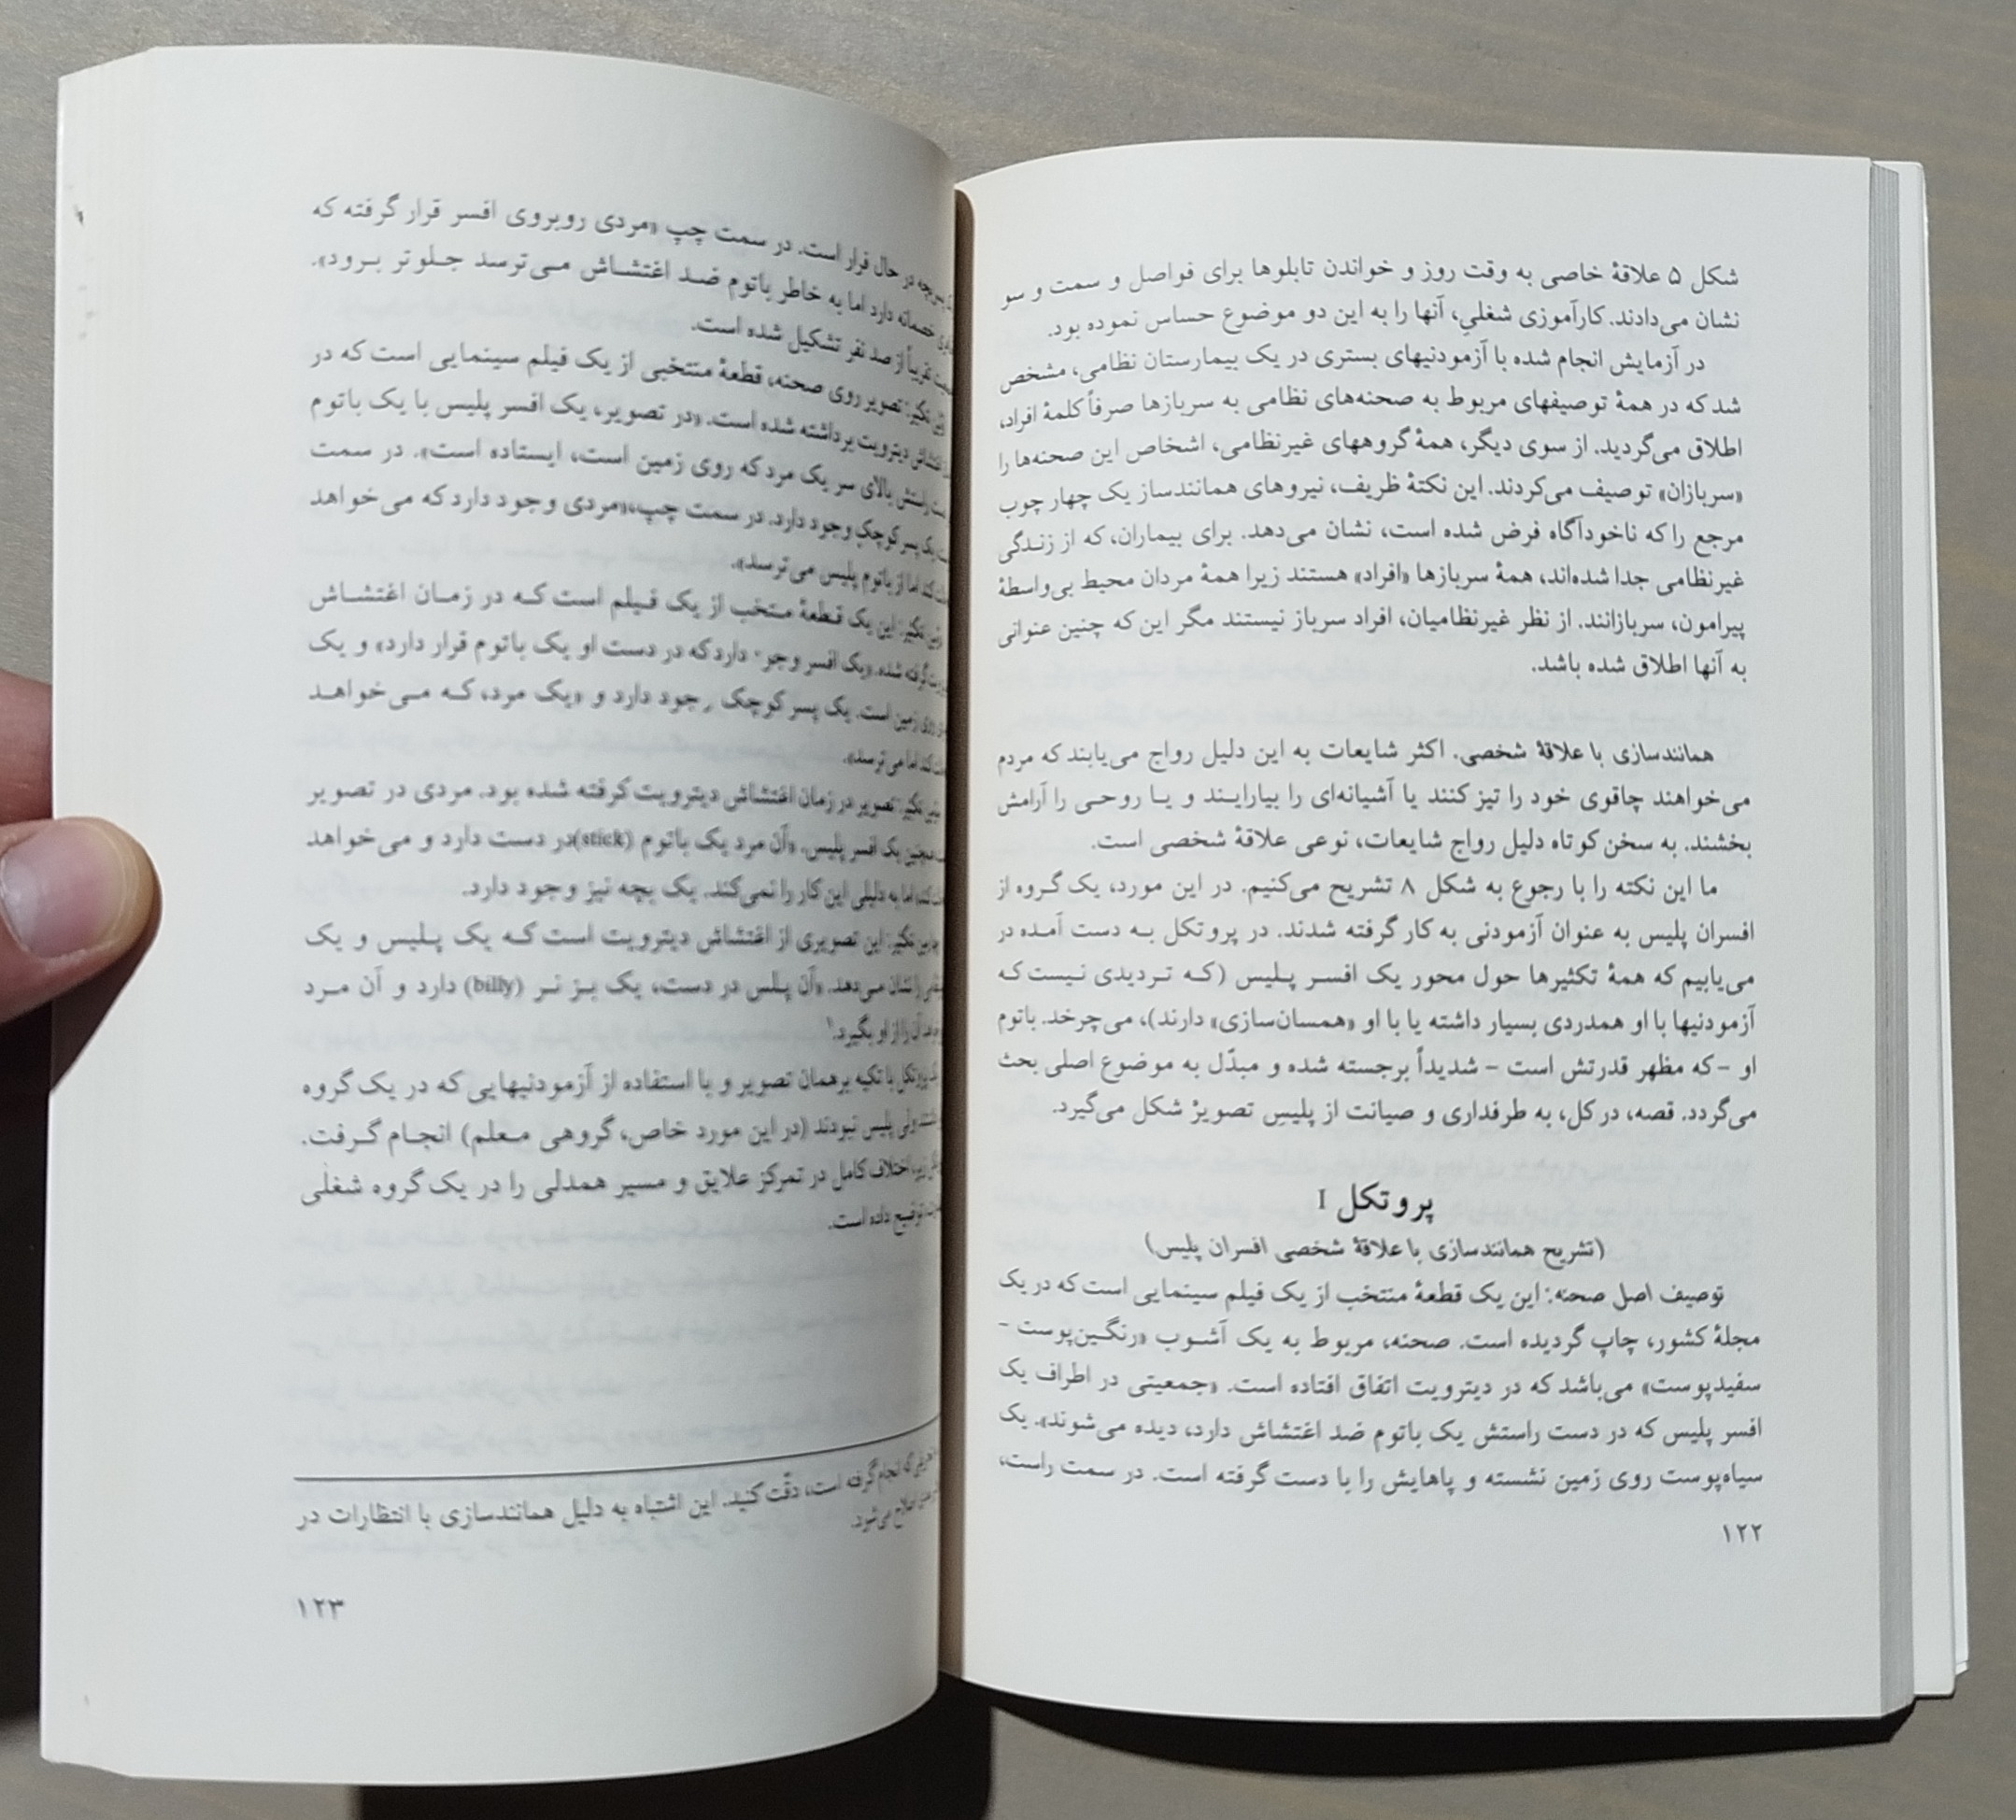 شکل ۵ علاقهٔ خاصی به وقت روز و خواندن تابلوها برای فواصل و سمت و سو
نشان می‌دادند. کارآموزی شغلی، آنها را به این دو موضوع حساس نموده بود.
در آزمایش انجام شده با آزمودنیهای بستری در یک بیمارستان نظامی، مشخص
شد که در همهٔ توصیفهای مربوط به صحنه‌های نظامی به سربازها صرفاً کلمهٔ افراد،
اطلاق می‌گردید. از سوی دیگر، همهٔ گروههای غیرنظامی، اشخاص این صحنه‌ها را
«سربازان» توصیف می‌کردند. این نکتهٔ ظریف، نیروهای همانندساز یک چهار چوب
مرجع را که ناخودآگاه فرض شده است، نشان می‌دهد. برای بیماران، که از زندگی
غیرنظامی جدا شده‌اند، همهٔ سربازها «افراد» هستند زیرا همهٔ مردان محیط بی‌واسطهٔ
پیرامون، سربازانند. از نظر غیرنظامیان، افراد سرباز نیستند مگر این که چنین عنوانی
به آنها اطلاق شده باشد.
همانندسازی با علاقهٔ شخصی. اکثر شایعات به این دلیل رواج می‌یابند که مردم
می‌خواهند چاقوی خود را تیز کنند یا آشیانه‌ای را بیارایند و یا روحی را آرامش
بخشند. به سخن کوتاه دلیل رواج شایعات، نوعی علاقهٔ شخصی است.
ما این نکته را با رجوع به شکل ۸ تشریح می‌کنیم. در این مورد، یک گروه از
افسران پلیس به عنوان آزمودنی به کار گرفته شدند. در پروتکل به دست آمده در
می‌یابیم که همهٔ تکثیرها حول محور یک افسر پلیس (که تردیدی نیست که
آزمودنیها با او همدردی بسیار داشته یا با او «همسان‌سازی» دارند)، می‌چرخد. باتوم
او –که مظهر قدرتش است – شدیداً برجسته شده و مبدّل به موضوع اصلی بحث
می‌گردد. قصه، در کل، به طرفداری و صیانت از پلیسِ تصویرْ شکل می‌گیرد.
پروتکل I
(تشریح همانندسازی با علاقهٔ شخصی افسران پلیس)
توصیف اصل صحنه: این یک قطعهٔ منتخب از یک فیلم سینمایی است که در یک
مجلهٔ کشور، چاپ گردیده است. صحنه، مربوط به یک آشوب «رنگین‌پوست –
سفیدپوست» می‌باشد که در دیترویت اتفاق افتاده است. «جمعیتی در اطراف یک
افسر پلیس که در دست راستش یک باتوم ضد اغتشاش دارد، دیده می‌شوند». یک
سیاه‌پوست روی زمین نشسته و پاهایش را با دست گرفته است. در سمت راست،
۱۲۲
در حال قرار است. در سمت چپ «مردی روبروی افسر قرار گرفته که
خصمانه دارد اما به خاطر باتوم ضد اغتشاش می‌ترسد جلوتر برود».
تقریباً از صد نفر تشکیل شده است.
تصویر روی صحنه، قطعهٔ منتخبی از یک فیلم سینمایی است که در
اغتشاش دیترویت برداشته شده است. «در تصویر، یک افسر پلیس با یک باتوم
راستش بالای سر یک مرد که روی زمین است، ایستاده است». در سمت
یک پسر کوچک وجود دارد. در سمت چپ، «مردی وجود دارد که می‌خواهد
کند اما از باتوم پلیس می‌ترسد».
این یک قطعهٔ منتخب از یک فیلم است که در زمان اغتشاش
گرفته شده. «یک افسر وجو دارد که در دست او یک باتوم قرار دارد» و یک
روی زمین است. یک پسر کوچک جود دارد و «یک مرد، که می‌خواهد
کند اما می‌ترسد».
تصویر در زمان اغتشاش دیترویت گرفته شده بود. مردی در تصویر
همچنین یک افسر پلیس. «آن مرد یک باتوم (stick) در دست دارد و می‌خواهد
کند، اما به دلیلی این کار را نمی‌کند. یک بچه نیز وجود دارد.
این تصویری از اغتشاش دیترویت است که یک پلیس و یک
را نشان می‌دهد. «آن پلس در دست، یک بز نر (billy) دارد و آن مرد
آن را از او بگیرد.¹
پروتکل با تکیه برهمان تصویر و با استفاده از آزمودنیهایی که در یک گروه
ولی پلیس نبودند (در این مورد خاص، گروهی معلم) انجام گرفت.
اختلاف کامل در تمرکز علایق و مسیر همدلی را در یک گروه شغلی
توضیح داده است.
که انجام گرفته است، دقّت کنید. این اشتباه به دلیل همانندسازی با انتظارات در
می‌شود.
۱۲۳